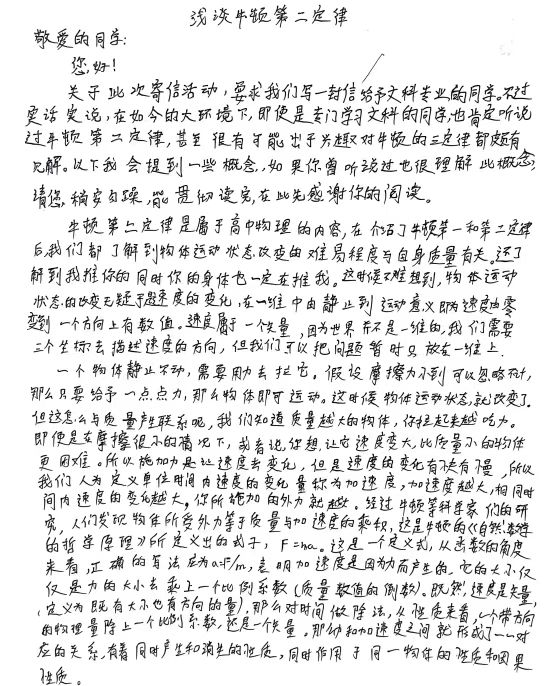 浅谈牛顿第二定律
敬爱的同学:
您好!
关于此次寄信活动,要求我们写一封信给予文科专业的同学。不过
实话实说,在如今的大环境下,即便是专门学习文科的同学,也肯定听说
过牛顿第二定律,甚至很有可能出于兴趣对牛顿的三定律都颇有
见解。以下我会提到一些概念,如果你曾听说过也很理解此概念,
请您稍安勿躁,能贯彻读完,在此先感谢你的阅读。
牛顿第二定律是属于高中物理的内容,在介绍了牛顿第一和第二定律
后,我们都了解到物体运动状态改变的难易程度与自身质量有关。还了
解到我推你的同时你的身体也一定在推我。这时候不难想到,物体运动
状态的改变无疑于是速度的变化,在一维中由静止到运动意义即为速度由零
变到一个方向上有数值。速度属于一个矢量,因为世界并不是一维的,我们需要
三个坐标去描述速度的方向,但我们可以把问题暂时只放在一维上.
一个物体静止不动,需要用力去拉它。假设摩擦力小到可以忽略不计,
那么只要给予一点点力,那么物体即可运动。这时候物体运动状态,就改变了.
但这怎么与质量产生联系呢,我们知道质量越大的物体,你拉起来越吃力。
即使是在摩擦很小的情况下,或者说,你想让它速度变大,比质量小的物体
更困难。所以施加力是让速度去变化,但是速度的变化有快有慢,所以
我们人为定义单位时间内速度的变化量称为加速度,加速度越大,相同时
间内速度的变化越大,你所施加的外力就越大。经过牛顿等科学家们的研
究,人们发现物体所受外力等于质量与加速度的乘积,这是牛顿的《自然数学
的哲学原理》所定义出的式子,F=ma。这是一个定义式,从函数的角度
来看,正确的写法应为a=F/m,表明加速度是因为力而产生的,它的大小仅
仅是力的大小去乘上一个比例系数(质量数值的倒数)。既然,速度是矢量,
(定义为既有大小也有方向的量),那么对时间做除法,从性质来看,一个带方向
的物理量除上一个比例系数,还是一个矢量。那么力和加速度之间就形成了一一对
应的关系,有着同时产生和消失的性质,同时作用于同一物体的性质和因果
性质。